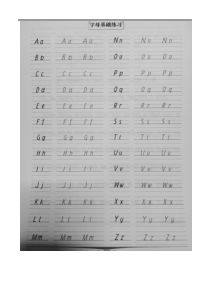 字母基础练习
Aa Aa Aa Nn Nn Nn
Bb Bb Bb Oo Oo Oo
Cc Cc Cc Pp Pp Pp
Dd Dd Dd Qq Qq Qq
Ee Ee Ee Rr Rr Rr
Ff Ff Ff Ss Ss Ss
Gg Gg Gg Tt Tt Tt
Hh Hh Hh Uu Uu Uu
Ii Ii Ii Vv Vv Vv
Jj Jj Jj Ww Ww Ww
Kk Kk Kk Xx Xx Xx
Ll Ll Ll Yy Yy Yy
Mm Mm Mm Zz Zz Zz